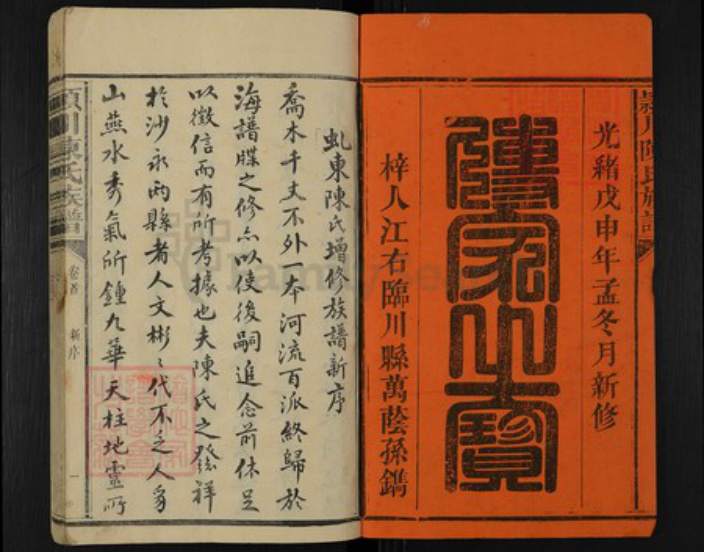 穎川陳氏族譜
光緒戊申年孟冬月新修
傳家之寶
梓人江右臨川縣萬蔭孫鐫
虬東陳氏增修族譜新序
喬木千丈不外一本河流百派終歸於
海譜牒之修亦以使後嗣追念前休足
以徵信而有所考據也夫陳氏之發祥
於沙永兩縣者人文彬〻代不乏人蓋
山燕水秀氣所鍾九華天柱地靈所
潁川陳氏族譜
卷首
新序
一